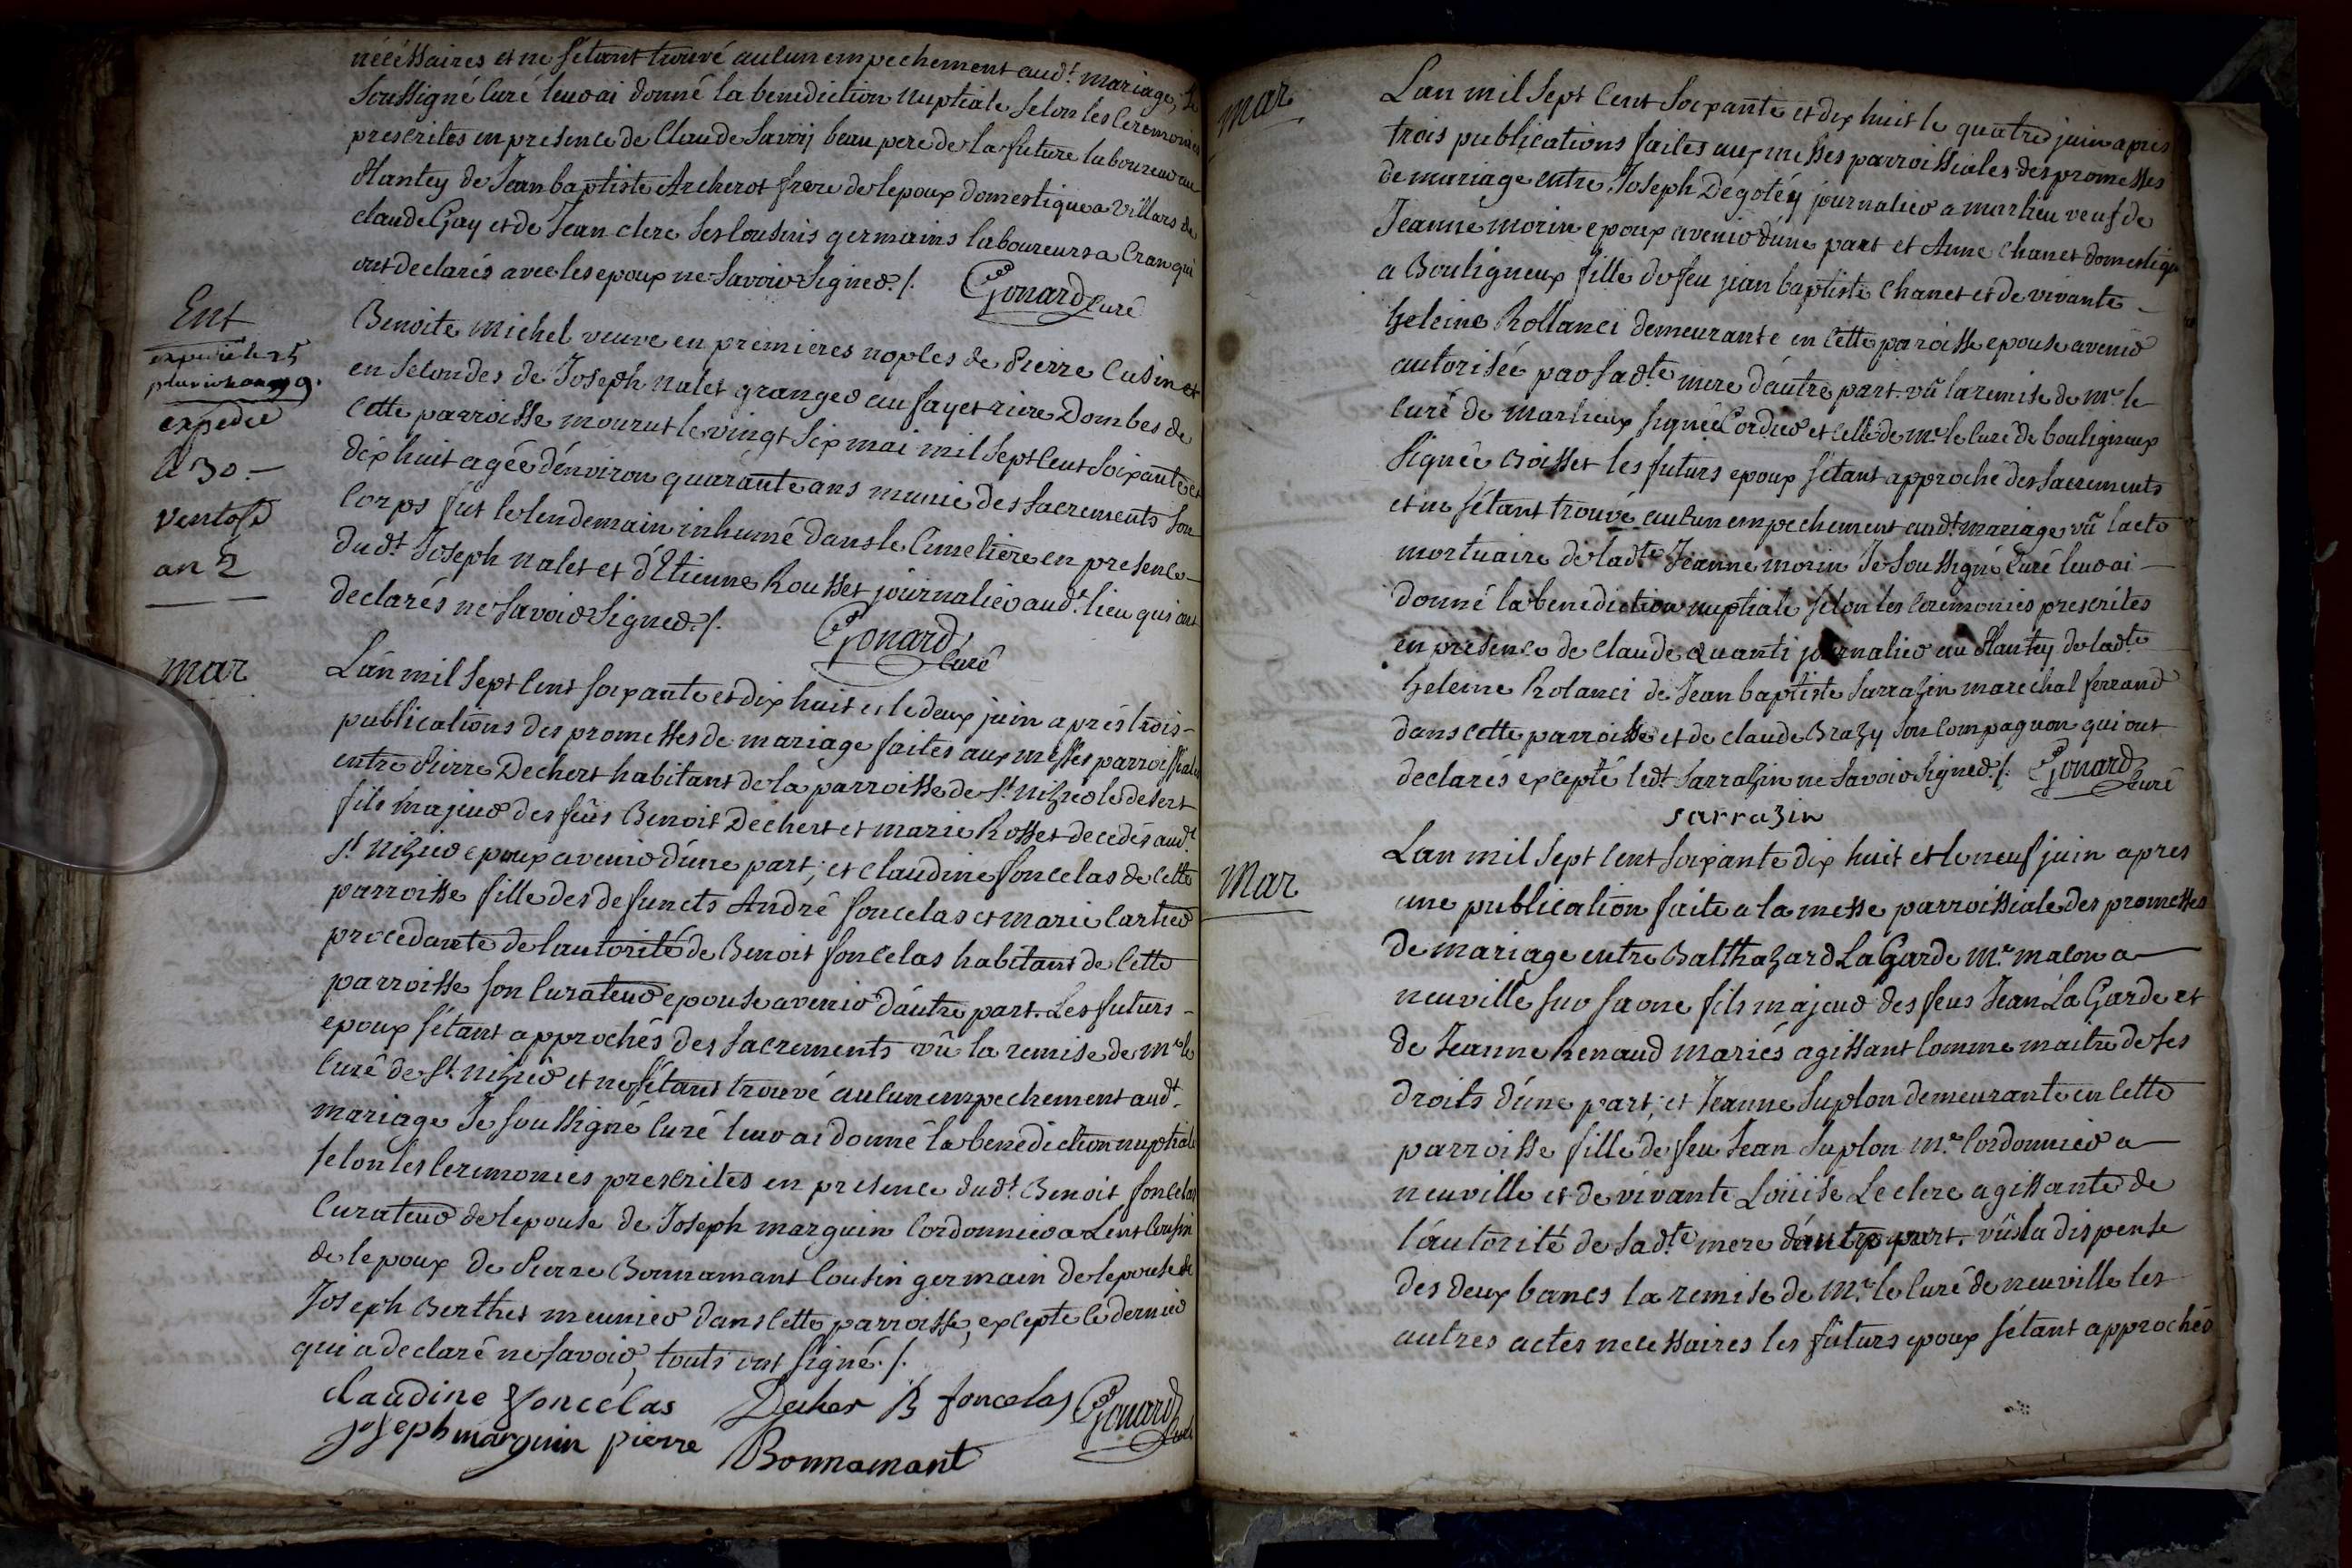 nécéssaires et ne s'étant trouvé aucun empechement aud.t mariage, Je
soussigné curé leur ai donné la benediction nuptiale selon les ceremonies
prescrites en presence de Claude Savoij beau pere de la future laboureur au
Plantey de Jean baptiste Archerot frere de lepoux domestique a Villars de
claude Gay et de Jean clerc ses cousins germains laboureurs a Cran qui
ont declarés avec les epoux ne savoir signer ./. Gonard curé
Ent
expedié le 25
pluviose an 9.
expedié
le 30 —
ventose
an 2
Benoite Michel veuve en premieres nopces de Pierre Cusin et
en secondes de Joseph Nalet granger au fayet riere Dombes de
cette parroisse mourut le vingt six mai mil sept cent soixante et
dix huit agée d'environ quarante ans munie des sacrements son
corps fut le lendemain inhumé dans le Cimetiere en presence —
dudt Joseph Nalet et d'Etienne Rousset journalier audt. lieu qui ont
declarés ne savoir signer ./. Gonard
curé
mar
L'an mil sept cent soixante et dix huit et le deux juin aprés trois —
publications des promesses de mariage faites aux messes parroissiales
entre Pierre Dechert habitant de la parroisse de St. nizier le desert
fils majeur des feûs Benoit Dechert et marie Rosset decedés audt.
St. nizier epoux avenir d'une part; et Claudine foncelas de cette
parroisse fille des defuncts André foncelas et marie Cartier
procedante de lautorité de Benoit foncelas habitant de cette
parroisse son curateur epouse avenir d'autre part. Les futurs —
epoux s'étant approchés des sacrements vû la remise de Mr le
curé de St. nizier et ne s'étant trouvé aucun empechement audt.
mariage Je soussigné curé leur ai donné la benediction nuptiale
selon les ceremonies prescrites en presence dudt. Benoit foncelas
curateur de lepouse de Joseph marguin cordonnier a Lent cousin
de lepoux de Pierre Bonnamant cousin germain de lepouse de
Joseph Berthet meunier dans cette parroisse, excepté le dernier
qui a declaré ne savoir, touts ont signé ./.
claudine foncelas Decher B foncelas Gonard
joseph marguin pierre Bonnamant curé
mar
L'an mil sept cent soixante et dix huit le quatre juin aprés
trois publications faites aux messes parroissiales des promesses
de mariage entre Joseph Degotéy journalier a marlieu veuf de
Jeanne morin epoux avenir d'une part et Anne Chanet domestique
a Bouligneux fille de feu jean baptiste Chanet et de vivante —
heleine Rollanci demeurante en cette paroisse epouse avenir
autorisée par sadte. mere d'autre part. vû la remise de Mr. le
curé de marlieux signée Cordier et celle de Mr le curé de bouligneux
signée Boisset les futurs epoux s'étant approché des sacrements
et ne s'étant trouvé aucun empechement audt. mariage vû lacte
mortuaire de ladte. Jeanne morin Je soussigné curé leur ai —
donné la benediction nuptiale selon les ceremonies prescrites
en presence de claude Quanti journalier au Plantey de ladte
heleine Rolanci de Jean baptiste Sarrazin marechal ferrand
dans cette parroisse et de claude Brazy son compagnon qui ont
declarés excepté ledt. Sarrazin ne savoir signer ./. Gonard
curé
sarrazin
Mar
L'an mil sept cent soixante dix huit et le neuf juin apres
une publication faite a la messe parroissiale des promesses
de mariage entre Balthazard La Garde Mr. maçon a —
neuville sur saone fils majeur des feus Jean La Garde et
de Jeanne Renaud mariés agissant comme maitre de ses
droits d'une part; et Jeanne Suplon demeurante en cette
parroisse fille de feu Jean Suplon Mr. Cordonnier a —
neuville et de vivante Louise Leclerc agissante de
l'autorité de sadte. mere d'autre part. vûs la dispense
des deux bancs la remise de Mr. le curé de neuville les
autres actes necessaires les futurs epoux s'étant approchés